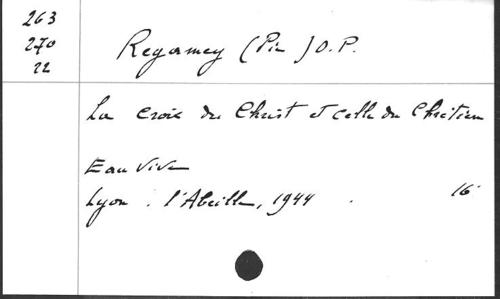 263
270
22
Regamey (Pie) O.P.
La Croix du Christ et celle du Chrétien
Eau Vive
Lyon . l'Abeille, 1944 . 16°